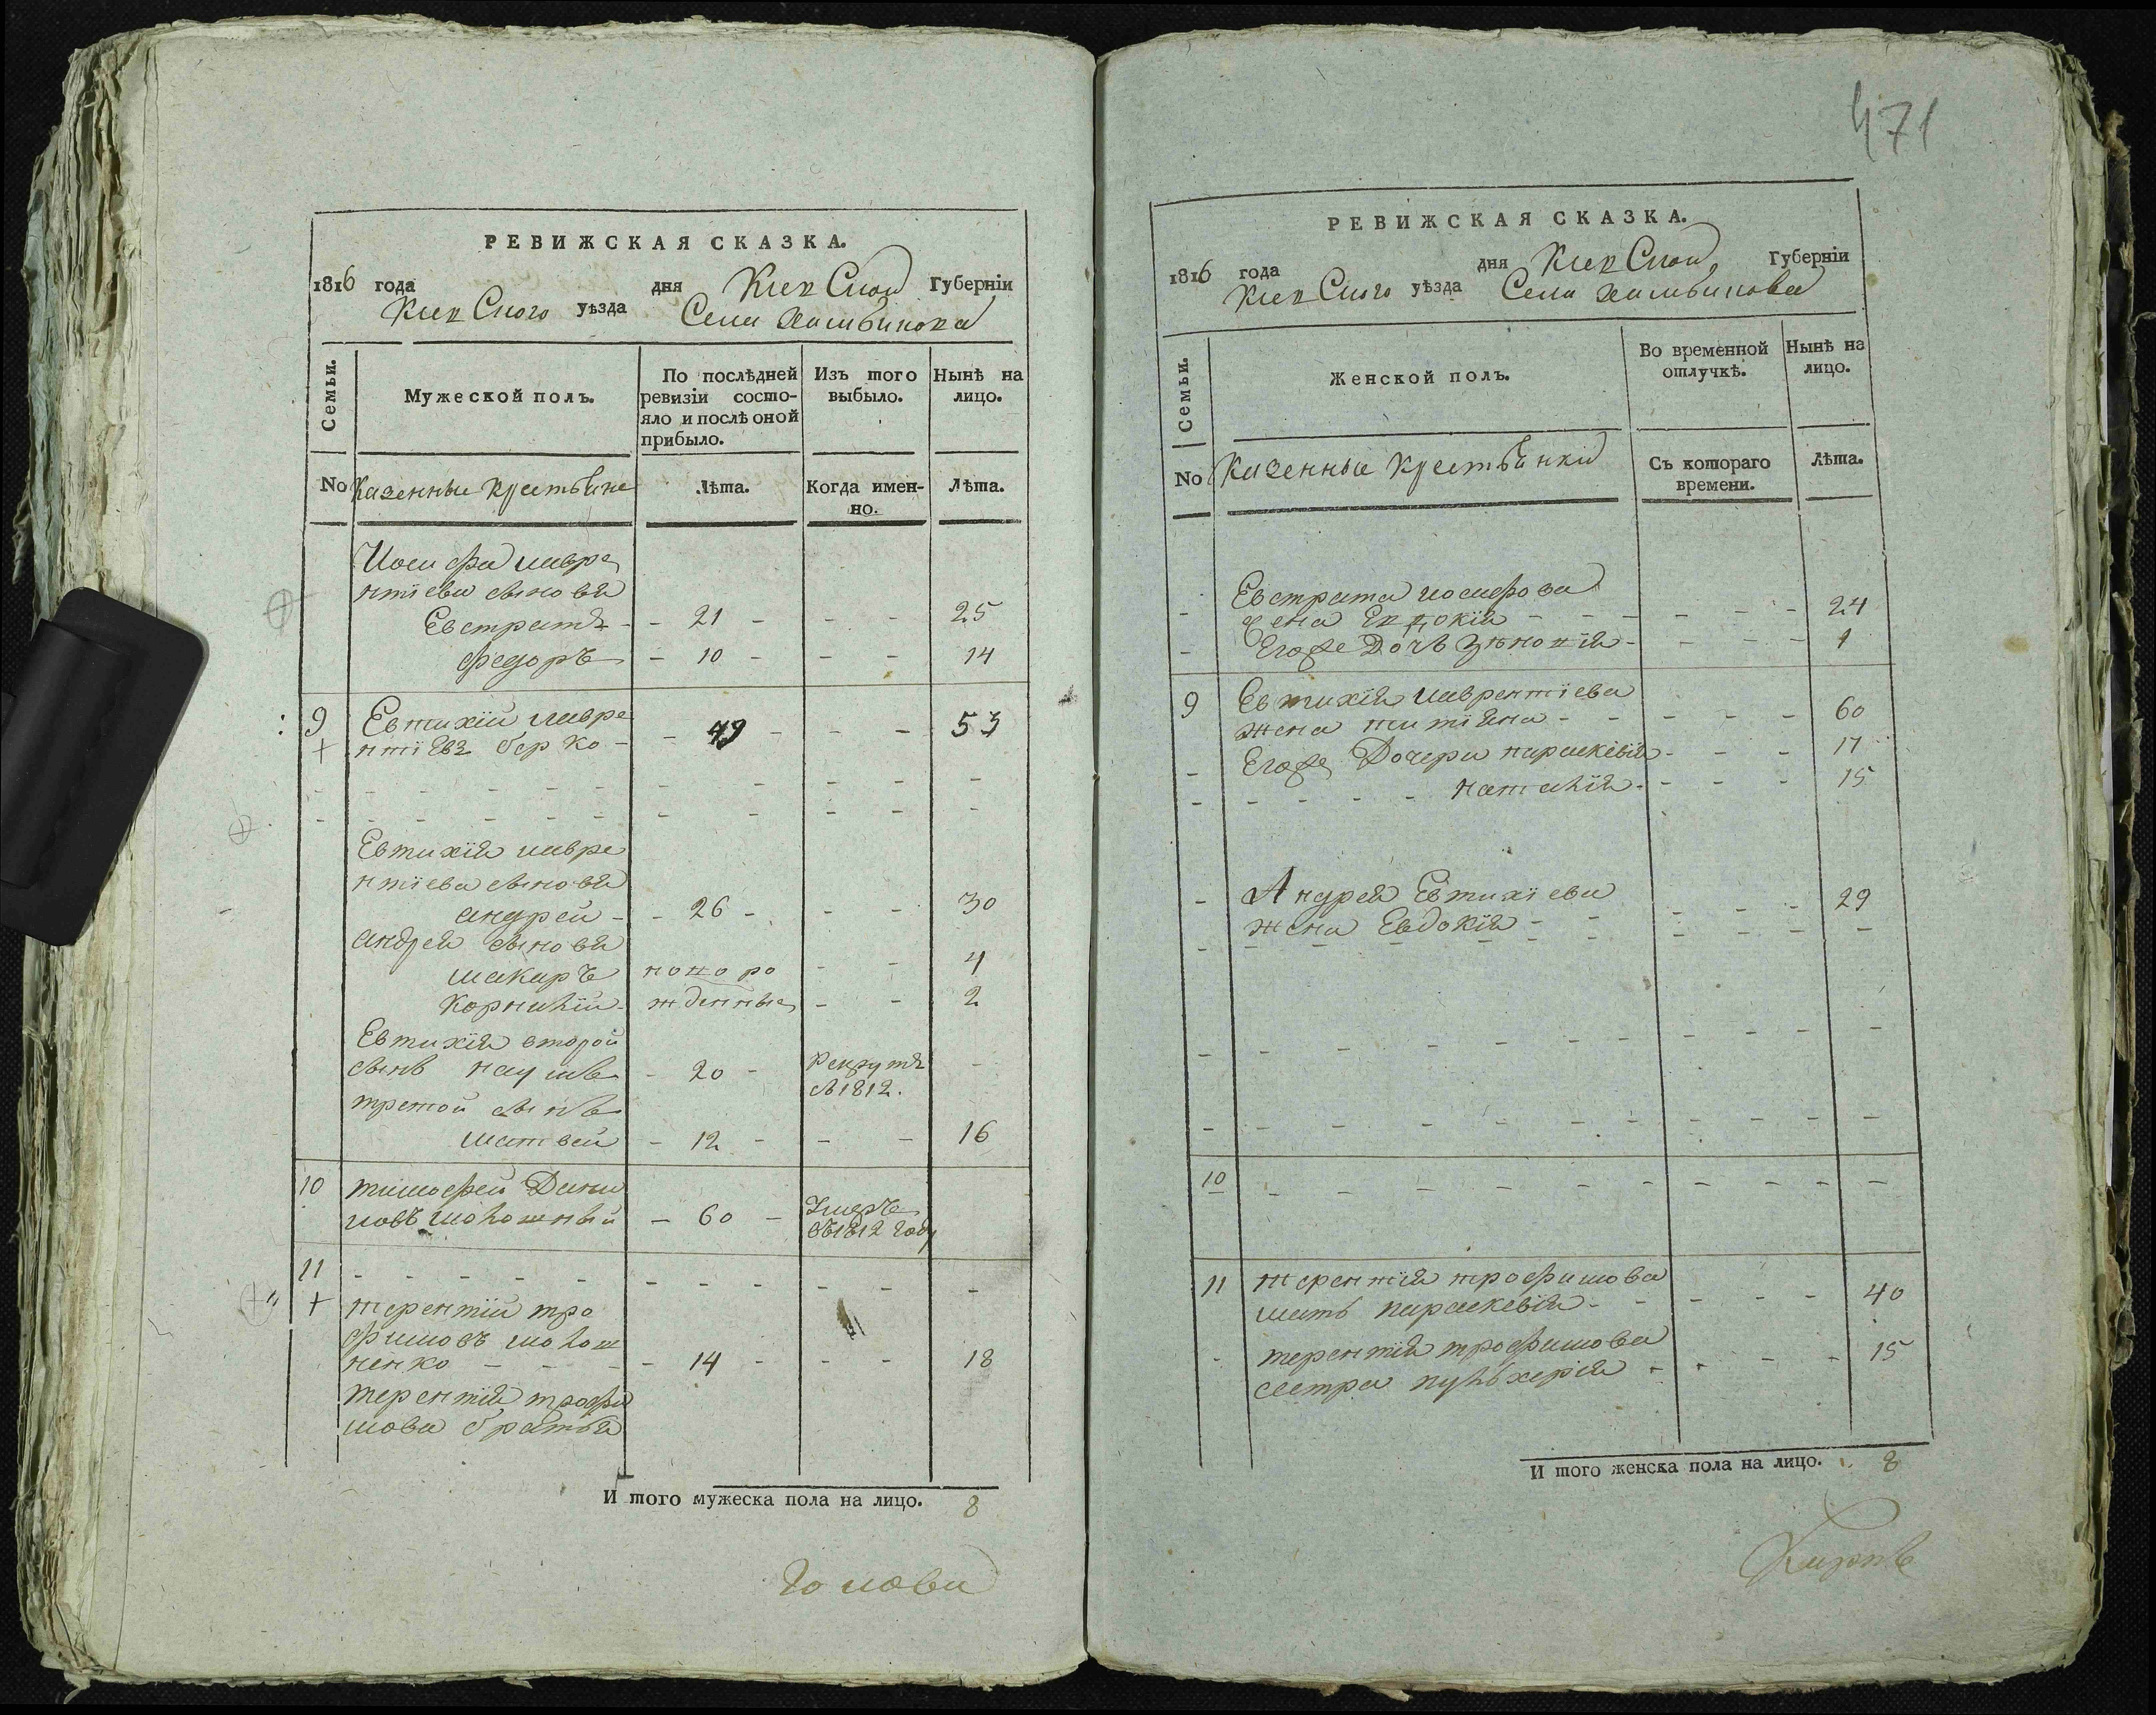 РЕВИЖСКАЯ СКАЗКА.
1816 года дня Киевской Губернїи
Киевского уѣзда Села
Семьи.
Мужеской полъ.
По послѣдней ревизїи состо-
яло и послѣ оной
прибыло.
Изъ того
выбыло.
Нынѣ на
лицо.
No Казенные Крестьяне
Лѣта.
Когда имен-
но.
Лѣта.
Иосифа лавре
нтїева сыновя
Евстратъ - - 21 - - - 25
федоръ - 10 - - - 14
9 Евтихїй лавре
+ нтїевъ берко - - 49 - - - 53
Евтихїя лавре
нтїева сыновя
андрей - - 26 - - - 30
андрея сыновя
макаръ новоро - - 4
корнилїй - жденные - - 2
Евтихїя второй
сынъ наумъ - 20 - рекрутъ -
в1812.
третой сынъ
матвей - 12 - - - 16
10 тимофей Дани
ловъ молошный - 60 - Умеръ
въ1812 году
11 - - - - -
+ терентїй тро
фимовъ молош
ненко - - - - 14 - - - 18
терентїя трофи
мова братья
И того мужеска пола на лицо. 8
голова
471
РЕВИЖСКАЯ СКАЗКА.
1816 года дня Киевской Губернїи
Киевского уѣзда Села
Семьи.
Женской полъ.
Во временной
отлучкѣ.
Нынѣ на
лицо.
No Казенные Крестьянки
Съ котораго
времени.
Лѣта.
- Евстрата иосифова
жена Евдокїя - - - - - - 24
- Егоже дочь Зѣновїя - - - - 1
9 Евтихїя лаврентїева
жена татїяна - - - - - 60
- Егоже Дочери параскевїя - - - 17
- - - - - - наталїя - - - - 15
- Андрея Евтихїева
жена Евдокїя - - - - - 29
10 - - - - - - - - - -
11 терентїя трофимова
мать параскевїя - - - - - 40
- терентїя трофимова
сестра пульхерїя - - - - 15
И того женска пола на лицо. 8